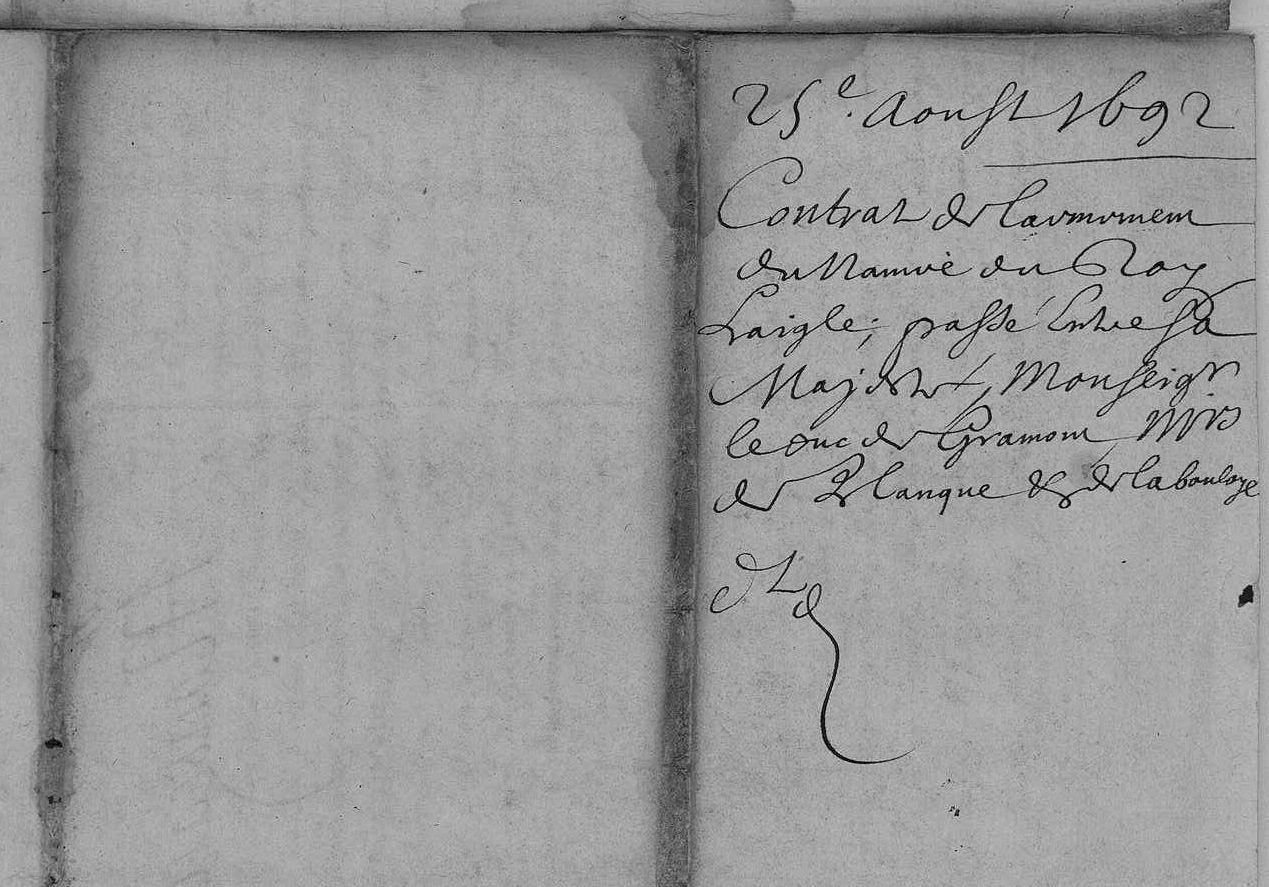 25e. Aoust 1692
Contrat de Larmement
du Navire du Roy
Laigle; passé Entre sa
Majesté, Monseigr
le duc de Gramont Mrs
de Planque & de laboulaye